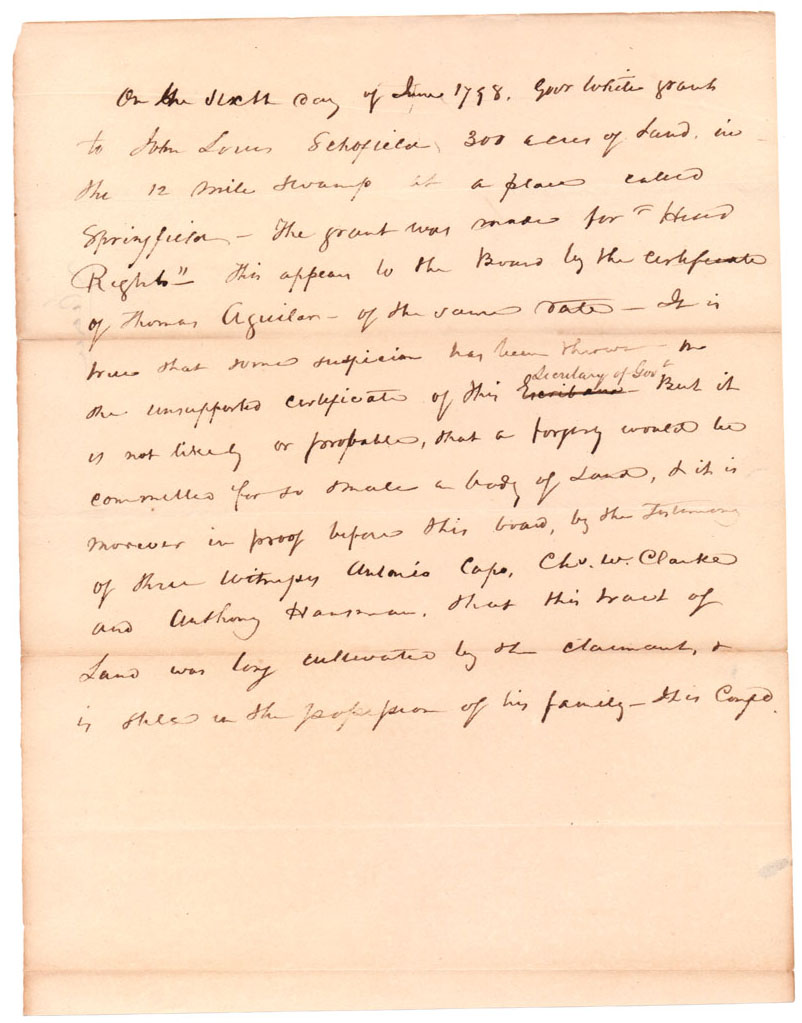 On the sixth day of June 1798. Govr White grants
to John Louis Schofield, 300 acres of Land, in
the 12 mile swamp at a place called
Springfield – The grant was made for "Head
Rights" – This appears to the Board by the certificate
of Thomas Aguilar – of the same date – It is
true that some suspicion has been thrown on
the unsupported certificate of this Escribano Secretary of Govt But it
is not likely or probable, that a forgery would be
committed for so small a body of Land, & it is
moreover in proof before this board, by the Testimony
of three Witnesses Antonio Capo, Chs. W. Clarke
and Anthony Hausman, that this tract of
Land was long cultivated by the claimant, &
is still in the possession of his family – It is Conf'd.